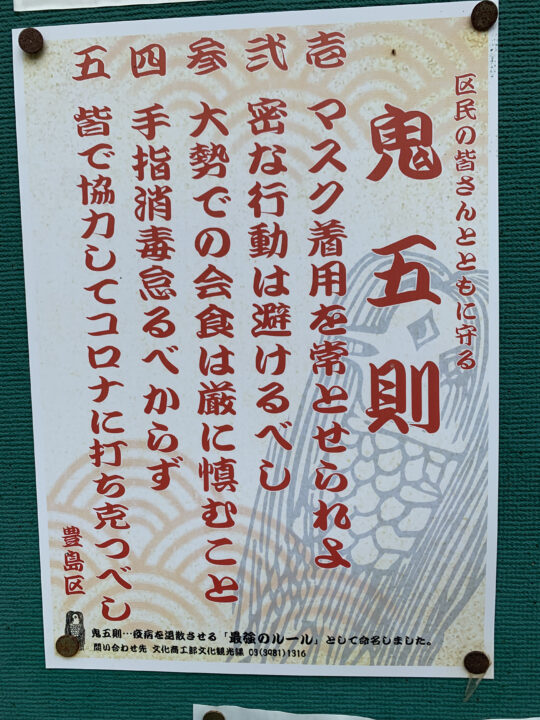 区民の皆さんとともに守る
鬼五則
壱 マスク着用を常とせられよ
弐 密な行動は避けるべし
参 大勢での会食は厳に慎むこと
四 手指消毒怠るべからず
五 皆で協力してコロナに打ち克つべし
豊島区
鬼五則…疫病を退散させる「最強のルール」として命名しました。
問い合わせ先 文化商工部文化観光課 03(3981)1316